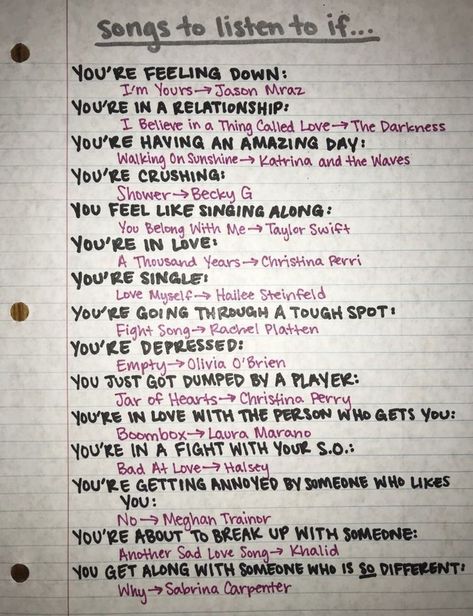 songs to listen to if...
YOU'RE FEELING DOWN:
I'm Yours→Jason Mraz
YOU'RE IN A RELATIONSHIP:
I Believe in a Thing Called Love→The Darkness
YOU'RE HAVING AN AMAZING DAY:
Walking On Sunshine→Katrina and the Waves
YOU'RE CRUSHING:
Shower→Becky G
YOU FEEL LIKE SINGING ALONG:
You Belong With Me→Taylor Swift
YOU'RE IN LOVE:
A Thousand Years→Christina Perri
YOU'RE SINGLE:
Love Myself→Hailee Steinfeld
YOU'RE GOING THROUGH A TOUGH SPOT:
Fight Song→Rachel Platten
YOU'RE DEPRESSED:
Empty→Olivia O'Brien
YOU JUST GOT DUMPED BY A PLAYER:
Jar of Hearts→Christina Perry
YOU'RE IN LOVE WITH THE PERSON WHO GETS YOU:
Boombox→Laura Marano
YOU'RE IN A FIGHT WITH YOUR S.O.:
Bad At Love→Halsey
YOU'RE GETTING ANNOYED BY SOMEONE WHO LIKES
YOU:
No→Meghan Trainor
YOU'RE ABOUT TO BREAK UP WITH SOMEONE:
Another Sad Love Song→Khalid
YOU GET ALONG WITH SOMEONE WHO IS SO DIFFERENT:
Why→Sabrina Carpenter